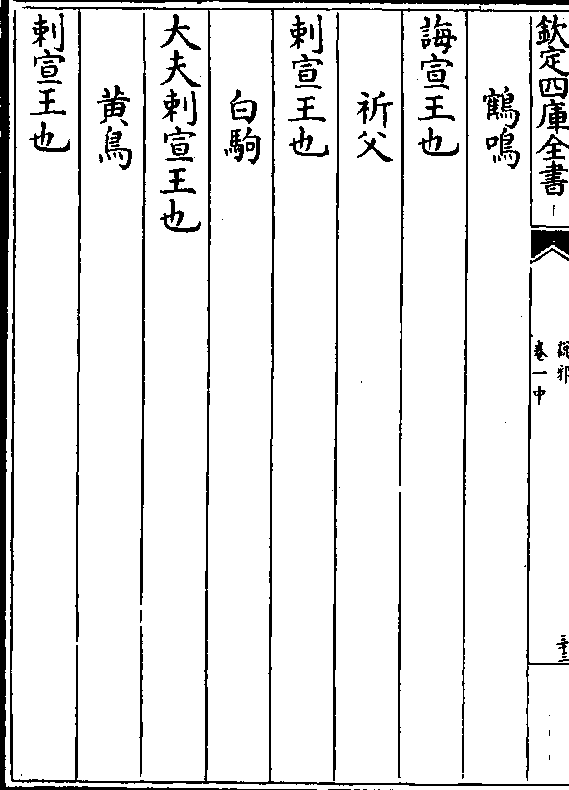 欽定四庫全書
說郛
卷一中
三十三
鶴鳴
誨宣王也
祈父
刺宣王也
白駒
大夫刺宣王也
黄鳥
刺宣王也